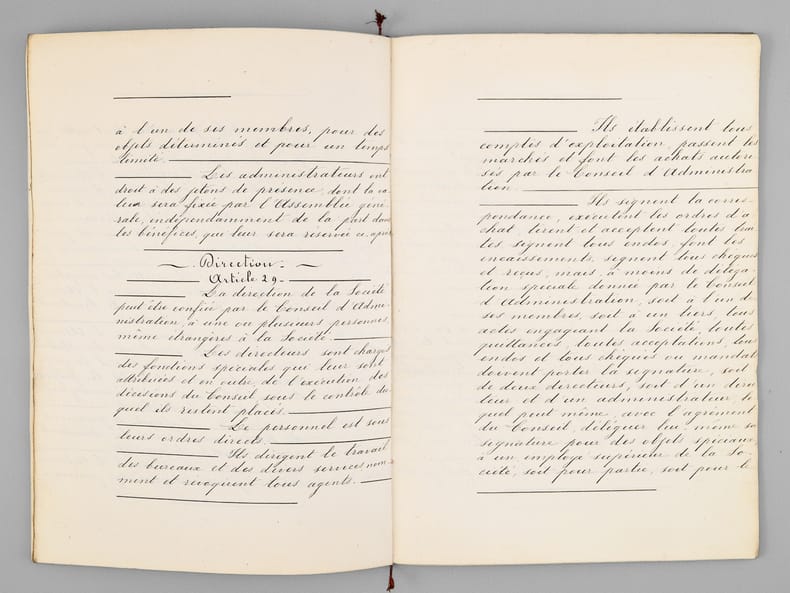 à l'un de ses membres, pour des
objets déterminés et pour un temps
limité.
Les administrateurs ont
droit à des jetons de présence dont la va
leur sera fixée par l'Assemblée géné
rale, indépendamment de la part dans
les bénéfices, que leur sera réservée ci-après
Direction
Article 29
La direction de la Société
peut être confiée par le Conseil d'Admi
nistration, à une ou plusieurs personnes,
même étrangères à la Société.
Les directeurs sont chargés
des fonctions spéciales qui leur sont
attribuées et en outre, de l'exécution des
décisions du Conseil sous le contrôle du
quel ils restent placés.
Le personnel est sous
leurs ordres directs.
Ils dirigent le travail
des bureaux et des divers services, nom
ment et révoquent tous agents.
Ils établissent tous
comptes d'exploitation, passent les
marchés et font les achats autori
sés par le Conseil d'Administra
tion.
Ils signent la corres-
pondance, exécutent les ordres d'a
chat, tirent et acceptent toutes trai
tes signent tous endos, font les
encaissements, signent tous chèques
et reçus, mais, à moins de déléga
tion spéciale donnée par le Conseil
d'Administration, soit à l'un de
ses membres, soit à un tiers, tous
actes engageant la Société, toutes
quittances, toutes acceptations, tous
endos et tous chèques ou mandats
doivent porter la signature, soit
de deux directeurs, soit d'un direc
teur et d'un administrateur, le
quel peut même, avec l'agrément
du Conseil, déléguer lui même sa
signature pour des objets spéciaux,
à un employé supérieur de la So-
ciété, soit pour partie, soit pour le